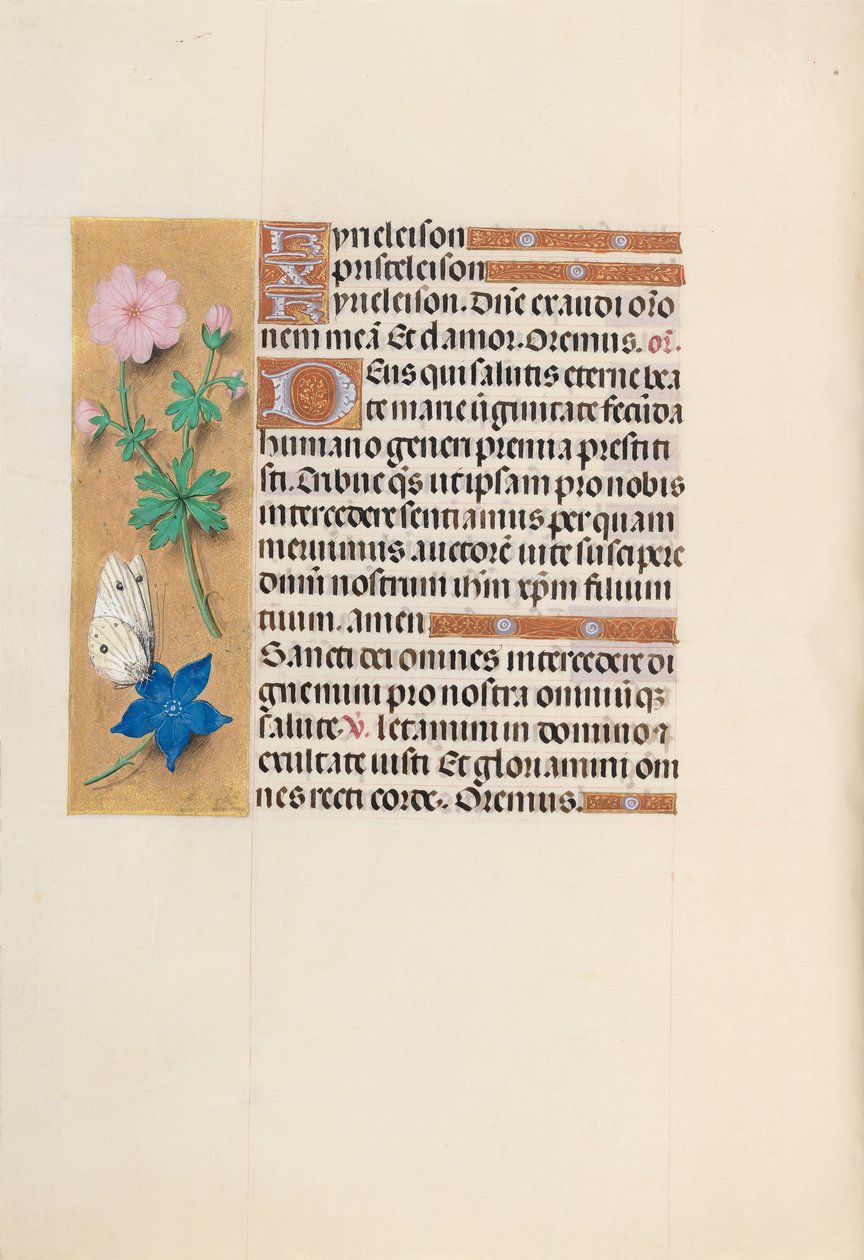 Kyrieleison
Xpristeleison
Kyrieleison. Dn̄e exaudi or̄o
nem meā Et clamor. Oremus. or̄.
Deus qui salutis eterne bea
te marie ūginitate fecūda
humano generi premia prestiti
sti. Tribue q̄s ut ipsam pro nobis
intercedere sentiamus per quam
meruimus auctorē uite suscipere
dn̄m nostrum ih̄m xp̄m filium
tuum. amen
Sancti dei omnes intercedere di
gnemini pro nostra omniūqꝫ
salute. V̄. letamini in domino ⁊
exultate iusti Et gloriamini om
nes recti corde. Oremus.